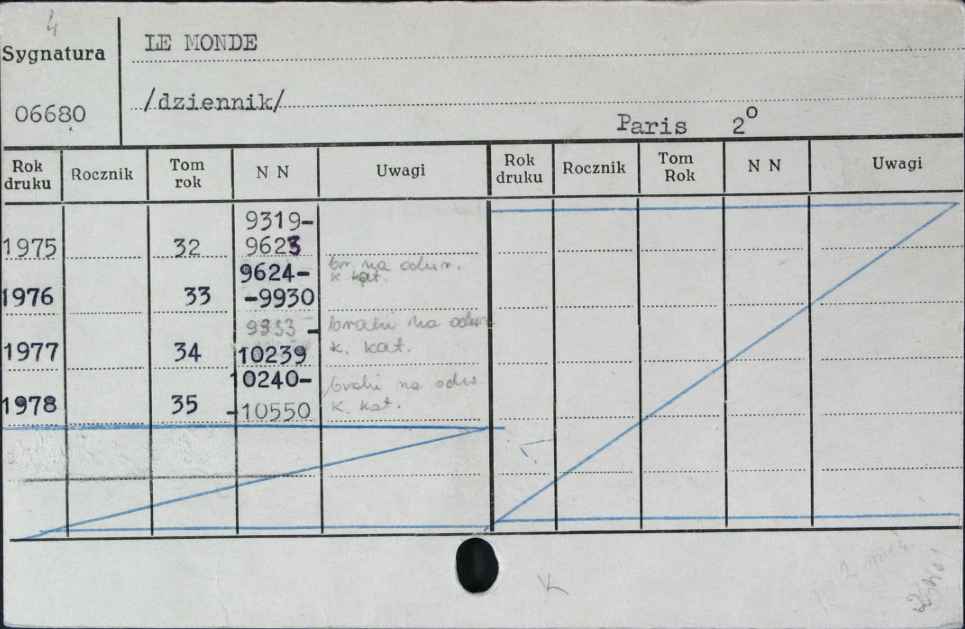 4
Sygnatura LE MONDE
06680 /dziennik/
Paris 2º
Rok druku Rocznik Tom rok N N Uwagi Rok druku Rocznik Tom Rok N N Uwagi
9319-
1975 32 9623
9624- br. na odwr.
k kat.
1976 33 -9930
- braki na odwr.
1977 34 10239 k. kat.
10240- braki na odw.
1978 35 -10550 k. kat.
K